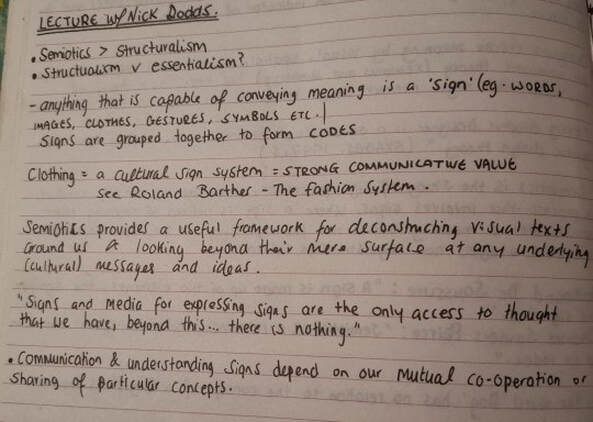 LECTURE w/ Nick Dodds.
• Semiotics > Structuralism
• Structuralism v essentialism?
- anything that is capable of conveying meaning is a 'sign' (eg. WORDS,
IMAGES, CLOTHES, GESTURES, SYMBOLS ETC.)
Signs are grouped together to form CODES
Clothing = a cultural sign system = STRONG COMMUNICATIVE VALUE
see Roland Barthes - The fashion System.
Semiotics provides a useful framework for deconstructing visual texts
around us & looking beyond their mere surface at any underlying
(cultural) messages and ideas.
"Signs and media for expressing signs are the only access to thought
that we have, beyond this... there is nothing."
• Communication & understanding signs depend on our mutual co-operation or
Sharing of particular concepts.